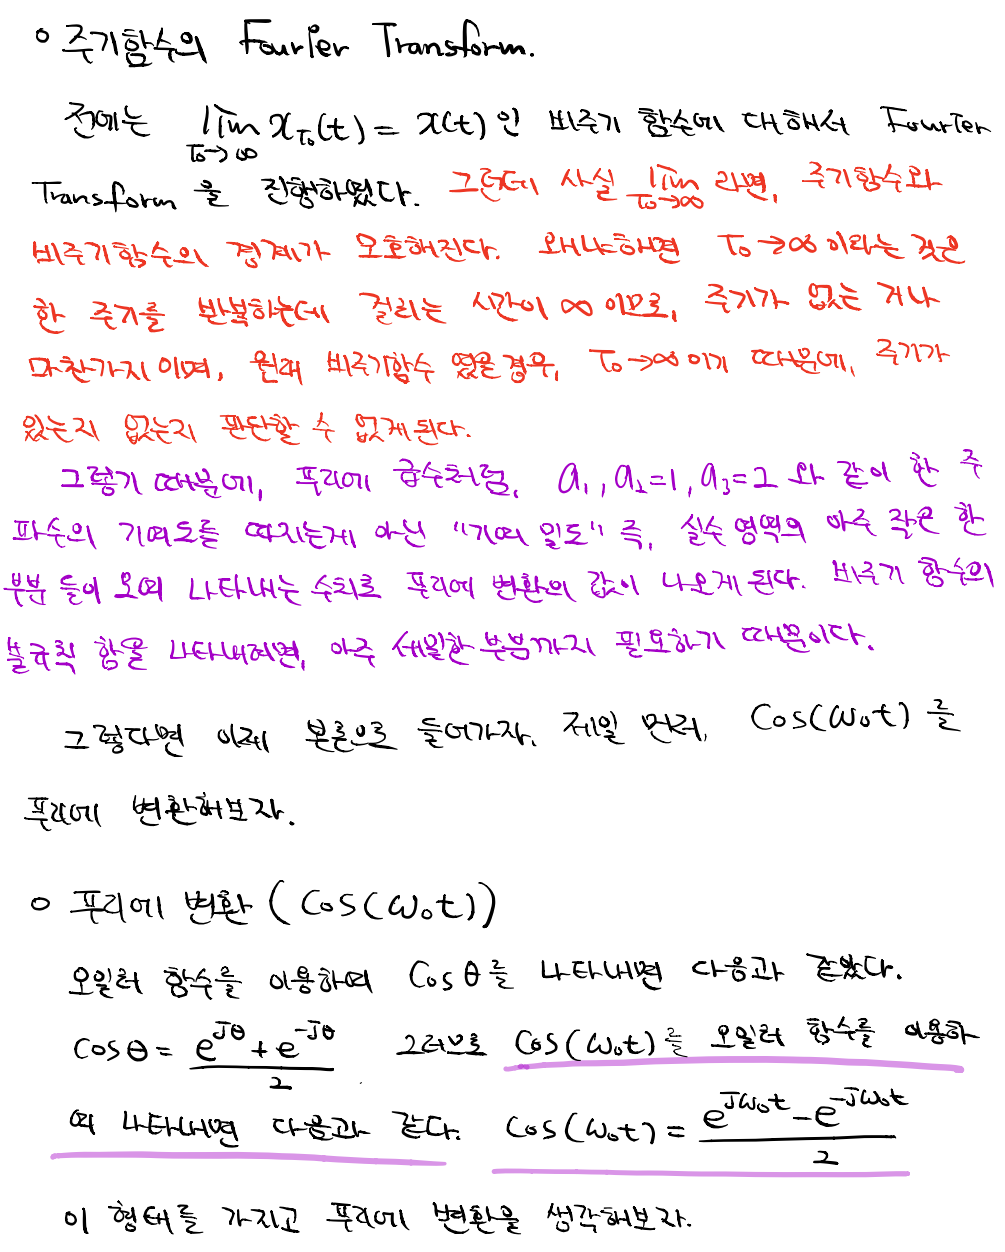 ○ 주기함수의 Fourier Transform.
전에는 lim_{T₀→∞} x_{T₀}(t) = x(t) 인 비주기 함수에 대해서 Fourier
Transform 을 진행하였다. 그런데 사실 lim_{T₀→∞} 라면, 주기함수와
비주기함수의 경계가 모호해진다. 왜냐하면 T₀→∞ 이라는 것은
한 주기를 반복하는데 걸리는 시간이 ∞ 이므로, 주기가 없는 거나
마찬가지 이며, 원래 비주기함수 였을경우, T₀→∞ 이기 때문에, 주기가
있는지 없는지 판단할 수 없게된다.
그렇기 때문에, 푸리에 급수처럼, a₁, a₂=1, a₃=2 와 같이 한 주
파수의 기여도를 따지는게 아닌 "기여 밀도" 즉, 실수 영역의 아주 작은 한
부분 들이 모여 나타내는 수치로 푸리에 변환의 값이 나오게된다. 비주기 함수의
불규칙 함을 나타내려면, 아주 세밀한 부분까지 필요하기 때문이다.
그렇다면 이제 본론으로 들어가자. 제일 먼저, Cos(ω₀t) 를
푸리에 변환해보자.
○ 푸리에 변환 (Cos(ω₀t))
오일러 함수를 이용하여 Cosθ를 나타내면 다음과 같았다.
Cosθ = (e^{Jθ} + e^{-Jθ})/2 그러므로 Cos(ω₀t)를 오일러 함수를 이용하
여 나타내면 다음과 같다. Cos(ω₀t) = (e^{Jω₀t} - e^{-Jω₀t})/2
이 형태를 가지고 푸리에 변환을 생각해보자.